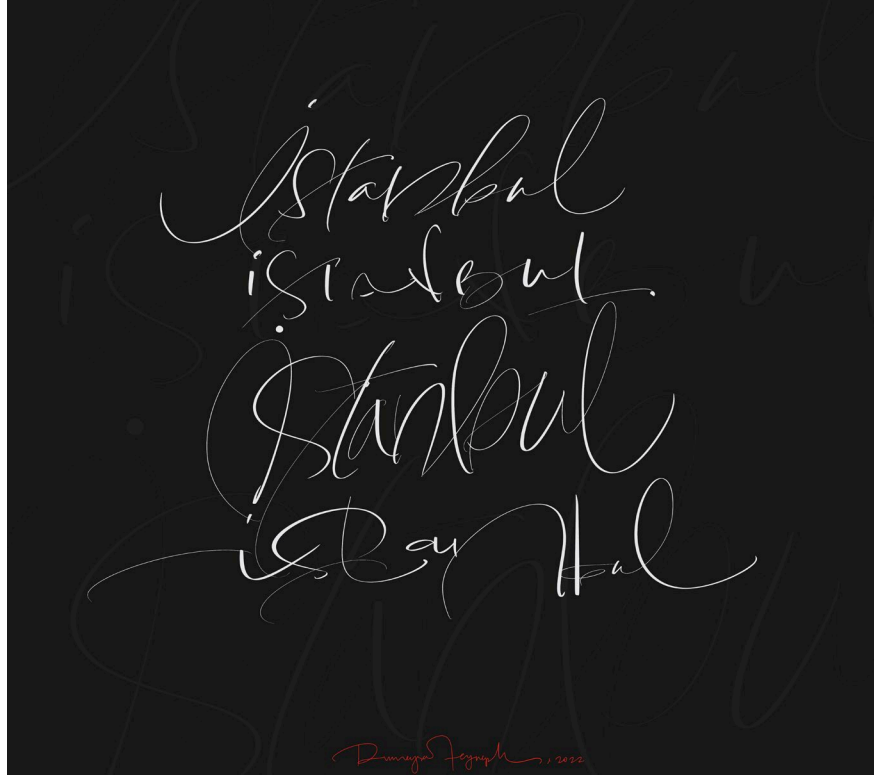 istanbul
istanbul.
istanbul
istanbul
, 2022